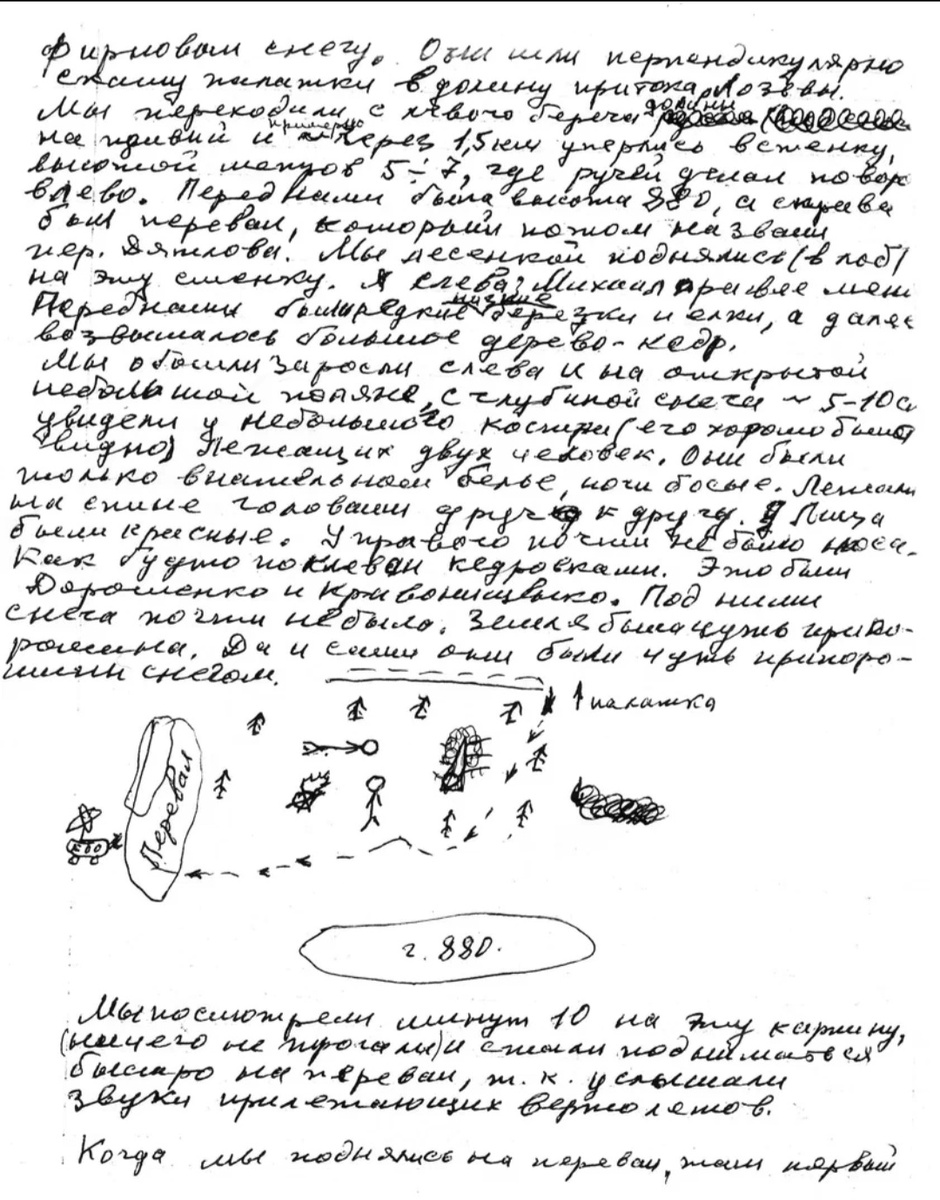 фирновом снегу. Они шли перпендикулярно
скату палатки в долину притока Лозьвы.
Мы переходили с левого берега долины
на правый и примерно через 1,5 км уперлись в стенку,
высотой метров 5÷7, где ручей делал повор
влево. Перед нами была высота 880, а справа
был перевал, который потом назвали
пер. Дятлова. Мы лесенкой поднялись (в лоб)
на эту стенку. Я слева, Михаил правее меня
Перед нами были редкие низкие березки и елки, а далее
возвышалось большое дерево-кедр.
Мы обошли заросли слева и на открытой
небольшой поляне, с глубиной снега ~ 5-10 с
увидели у небольшого костра (его хорошо было
видно) лежащих двух человек. Они были
только в нательном белье, ноги босые. Лежали
на спине головами друг к другу. Лица
были красные. У правого почти не было носа.
Как будто поклеван кедровками. Это были
Дорошенко и Кривонищенко. Под ними
снега почти не было. Земля была чуть припо-
рошена. Да и сами они были чуть припоро-
шены снегом.
↑ палатка
Перевал
г. 880.
Мы посмотрели минут 10 на эту картину,
(ничего не трогали) и стали подниматься
быстро на перевал, т.к. услышали
звуки прилетающих вертолетов.
Когда мы поднялись на перевал, там первый